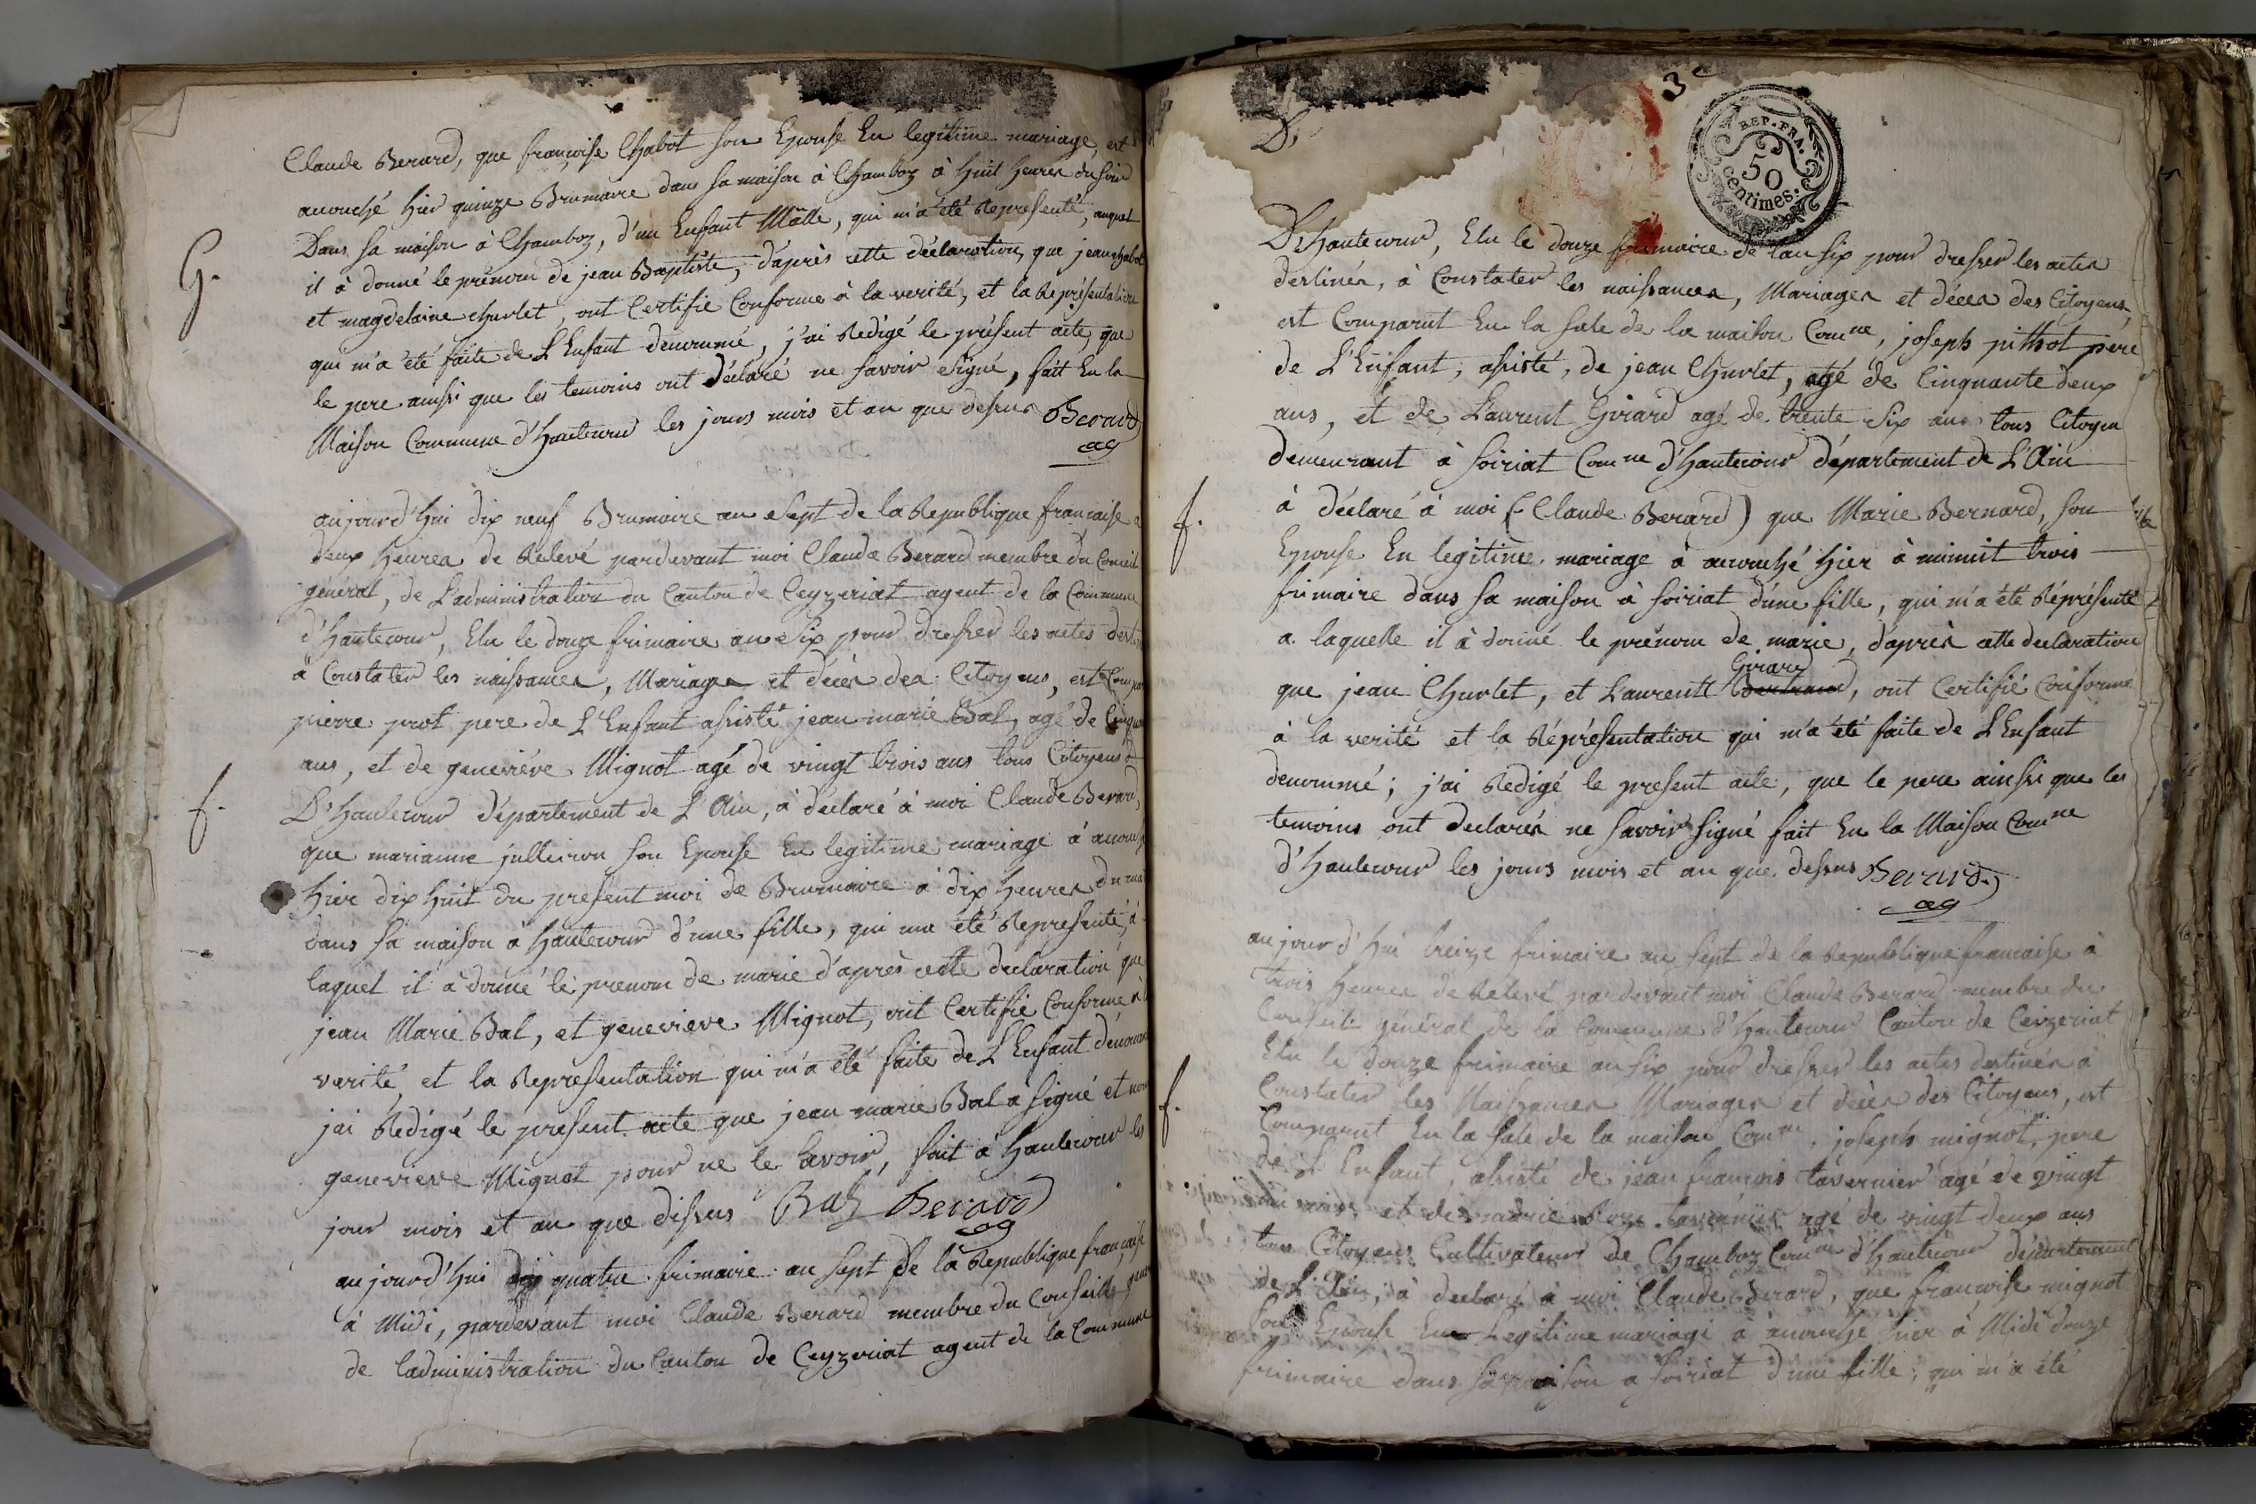 Claude Berard, que françoise Chabot son Epouse En legitime mariage, est
accouché hier quinze Brumaire dans sa maison à Chamboz à huit heures du soir
Dans sa maison à Chamboz, d'un Enfant Mâlle, qui m'a été Representé, auquel
il à donné le prénom de jean Baptiste, d'après cette déclaration, que jean chabot
G.
et magdelaine churlet, ont Certifie Conforme à la verité, et la Représentation
qui m'a été faite de L'Enfant denommé, j'ai Redigé le présent acte, que
le pere ainsi que les temoins ont Déclaré ne savoir signé, fait En la
Maison Commune d'hautecour les jours mois et an que dessus Berard
ag
aujourd'hui dix neuf Brumaire an Sept de la Republique francaise a
deux heures de Relevé pardevant moi Claude Berard membre du Conseil
général, de L'administration du Canton de Ceyzeriat agent de la Commune
d'hautecour, Elu le douze frimaire an Six pour dresser les actes
à Constater les naissances, Mariages et décès des Citoyens, est
pierre prot pere de L'Enfant assisté jean marie Bal, agé de
ans, et de geneviéve Mignot agé de vingt trois ans tous Citoyens
f.
D'hautecour département de L'Ain, à déclaré à moi Claude Berard,
que marianne jullieron son Epouse En legitime mariage à
hier dix huit du present moi de Brumaire à dix heures du
dans sa maison à hautecour d'une fille, qui ma été Representé, à
laquel il à donné le prenom de marie d'après cette declaration que
jean Marie Bal, et genevieve Mignot, ont Certifie Conforme à
verité et la Representation qui m'a été faite de L'Enfant
jai Redigé le present acte que jean marie Bal à signé et non
genevieve Mignot pour ne le Savoir, fait à hautecour les
jour mois et an que dessus Bal Berard
ag
aujourd'hui quatre frimaire an sept de la Republique française
à Midi, pardevant moi Claude Berard membre du Conseille
de ladministration du Canton de Ceyzeriat agent de la Commune
3
REP. FRA.
50
centimes.
D'
D'hautecour, Elu le douze frimaire de l'an six pour dresser les actes
destinés, à Constater les naissances, Mariages et décès des Citoyens,
est Comparut En la sale de la maison Comne, joseph pithiot pere
de L'Enfant, assisté, de jean Churlet, agé de Cinquante deux
ans, et de Laurent Girard agé de trente six ans tous Citoyen
demeurant à soiriat Comne d'hautecour département de L'Ain
f.
à déclaré à moi (Claude Berard) que Marie Bernard, son
Epouse En legitime mariage à accouché hier à minuit trois
frimaire dans sa maison à soiriat d'une fille, qui m'a été Réprésenté
a laquelle il à donné le prénom de marie, daprès cette declaration
Girard
que jean Churlet, et Laurent Bertrand, ont Certifié Conforme
à la verité et la Réprésentation qui m'a été faite de L'Enfant
denommé; j'ai Redigé le present acte, que le pere ainsi que les
temoins ont declarés ne savoir signé fait En la Maison Comne
d'hautecour les jours mois et an que dessus Berard
ag
aujourd'hui treize frimaire an sept de la Republique francaise à
trois heures de Relevé pardevant moi Claude Berard membre du
Conseil général de la Commune d'hautecour Canton de Ceyzeriat
Elu le douze frimaire an six pour dresser les actes destinés à
Constater les Naissances Mariages et décès des Citoyens, est
f.
Comparut En la sale de la maison Comne, joseph mignot, pere
de L'Enfant, assisté de jean françois tavernier agé de vingt
et de marie agé de vingt deux ans
tous Citoyens Cultivateurs de Chamboz Comne d'hautecour département
de L'Ain, à declaré à moi Claude Berard, que françoise mignot
son Epouse En Legitime mariage à accouché hier à Midi douze
frimaire dans sa maison a soiriat d'une fille, qui m'a été